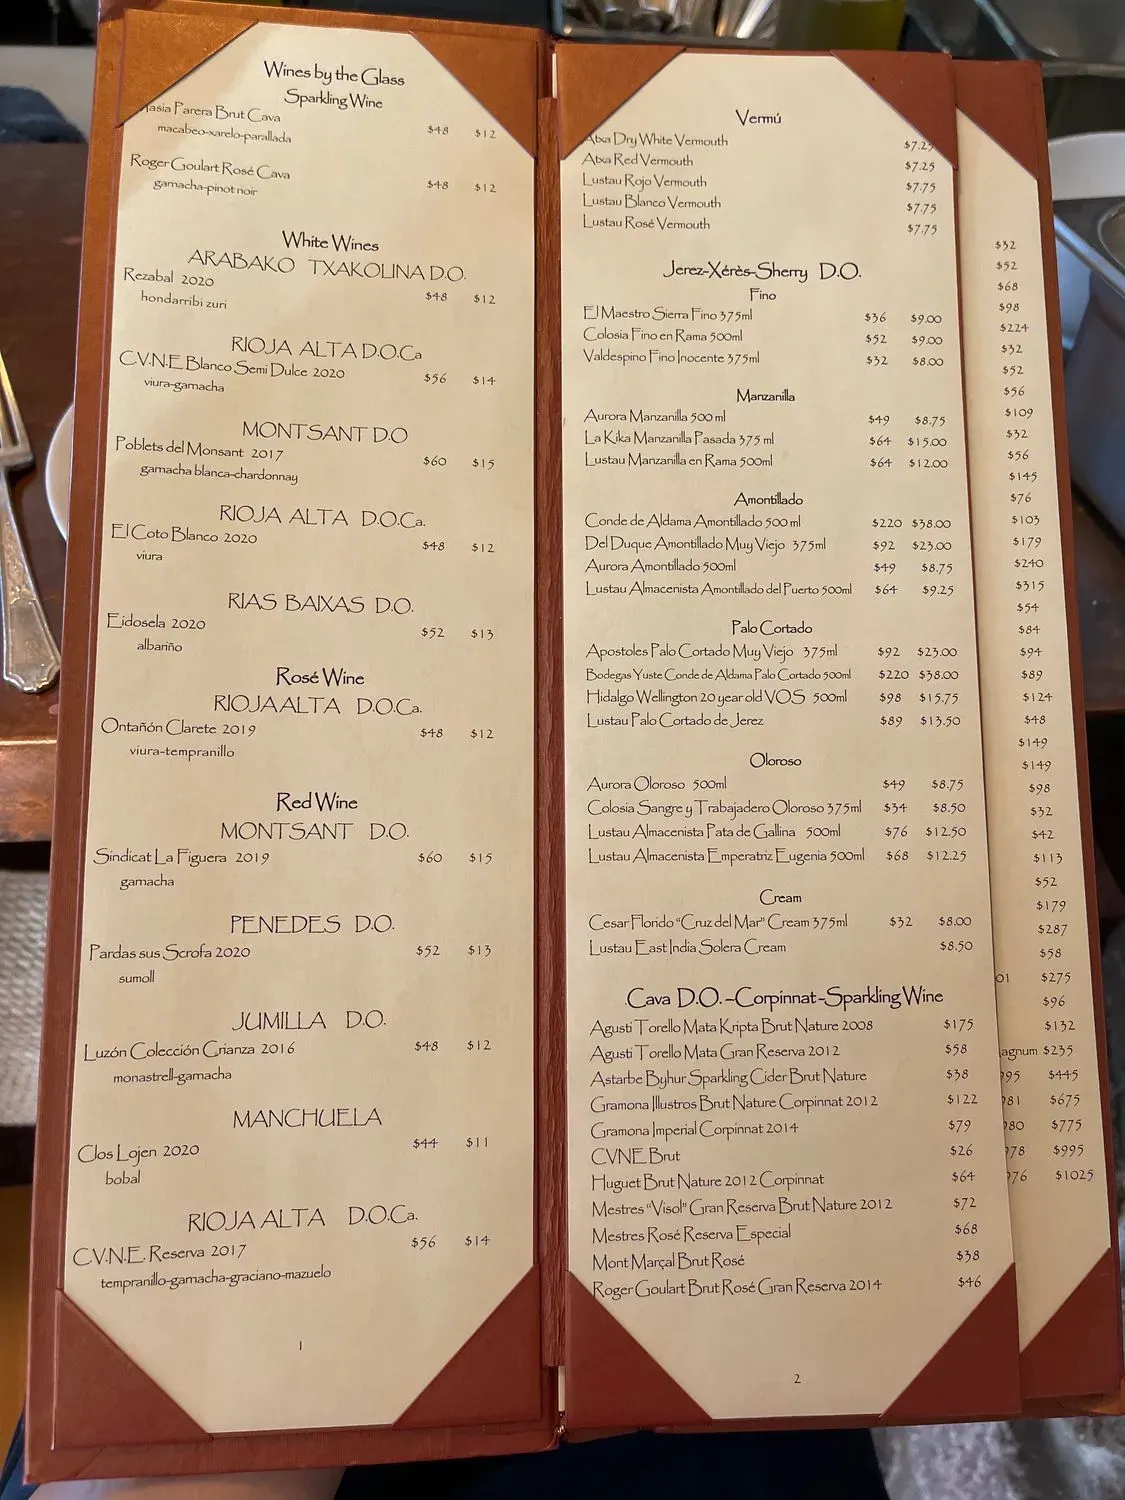 Wines by the Glass
Sparkling Wine
Masia Parera Brut Cava
macabeo-xarelo-parallada $48 $12
Roger Goulart Rosé Cava
garnacha-pinot noir $48 $12
White Wines
ARABAKO TXAKOLINA D.O.
Rezabal 2020
hondarribi zuri $48 $12
RIOJA ALTA D.O.Ca
C.V.N.E Blanco Semi Dulce 2020 $56 $14
viura-garnacha
MONTSANT D.O
Poblets del Monsant 2017 $60 $15
garnacha blanca-chardonnay
RIOJA ALTA D.O.Ca.
El Coto Blanco 2020 $48 $12
viura
RIAS BAIXAS D.O.
Eidosela 2020 $52 $13
albariño
Rosé Wine
RIOJA ALTA D.O.Ca.
Ontañón Clarete 2019 $48 $12
viura-tempranillo
Red Wine
MONTSANT D.O.
Sindicat La Figuera 2019 $60 $15
garnacha
PENEDES D.O.
Pardas sus Scrofa 2020 $52 $13
sumoll
JUMILLA D.O.
Luzón Colección Crianza 2016 $48 $12
monastrell-garnacha
MANCHUELA
Clos Lojen 2020 $44 $11
bobal
RIOJA ALTA D.O.Ca.
C.V.N.E. Reserva 2017 $56 $14
tempranillo-garnacha-graciano-mazuelo
1
Vermú
Atxa Dry White Vermouth $7.25
Atxa Red Vermouth $7.25
Lustau Rojo Vermouth $7.75
Lustau Blanco Vermouth $7.75
Lustau Rosé Vermouth $7.75
Jerez-Xérès-Sherry D.O.
Fino
El Maestro Sierra Fino 375ml $36 $9.00
Colosia Fino en Rama 500ml $52 $9.00
Valdespino Fino Inocente 375ml $32 $8.00
Manzanilla
Aurora Manzanilla 500 ml $49 $8.75
La Kika Manzanilla Pasada 375 ml $64 $15.00
Lustau Manzanilla en Rama 500ml $64 $12.00
Amontillado
Conde de Aldama Amontillado 500 ml $220 $38.00
Del Duque Amontillado Muy Viejo 375ml $92 $23.00
Aurora Amontillado 500ml $49 $8.75
Lustau Almacenista Amontillado del Puerto 500ml $64 $9.25
Palo Cortado
Apostoles Palo Cortado Muy Viejo 375ml $92 $23.00
Bodegas Yuste Conde de Aldama Palo Cortado 500ml $220 $38.00
Hidalgo Wellington 20 year old VOS 500ml $98 $15.75
Lustau Palo Cortado de Jerez $89 $13.50
Oloroso
Aurora Oloroso 500ml $49 $8.75
Colosia Sangre y Trabajadero Oloroso 375ml $34 $8.50
Lustau Almacenista Pata de Gallina 500ml $76 $12.50
Lustau Almacenista Emperatriz Eugenia 500ml $68 $12.25
Cream
Cesar Florido "Cruz del Mar" Cream 375ml $32 $8.00
Lustau East India Solera Cream $8.50
Cava D.O.-Corpinnat-Sparkling Wine
Agusti Torello Mata Kripta Brut Nature 2008 $175
Agusti Torello Mata Gran Reserva 2012 $58
Astarbe Byhur Sparkling Cider Brut Nature $38
Gramona Illustros Brut Nature Corpinnat 2012 $122
Gramona Imperial Corpinnat 2014 $79
CVNE Brut $26
Huguet Brut Nature 2012 Corpinnat $64
Mestres "Visol" Gran Reserva Brut Nature 2012 $72
Mestres Rosé Reserva Especial $68
Mont Marçal Brut Rosé $38
Roger Goulart Brut Rosé Gran Reserva 2014 $46
2
$32
$52
$68
$98
$224
$32
$52
$56
$109
$32
$56
$145
$76
$103
$179
$240
$315
$54
$84
$94
$89
$124
$48
$149
$149
$98
$32
$42
$113
$52
$179
$287
$58
01 $275
$96
$132
agnum $235
995 $445
981 $675
980 $775
978 $995
976 $1025